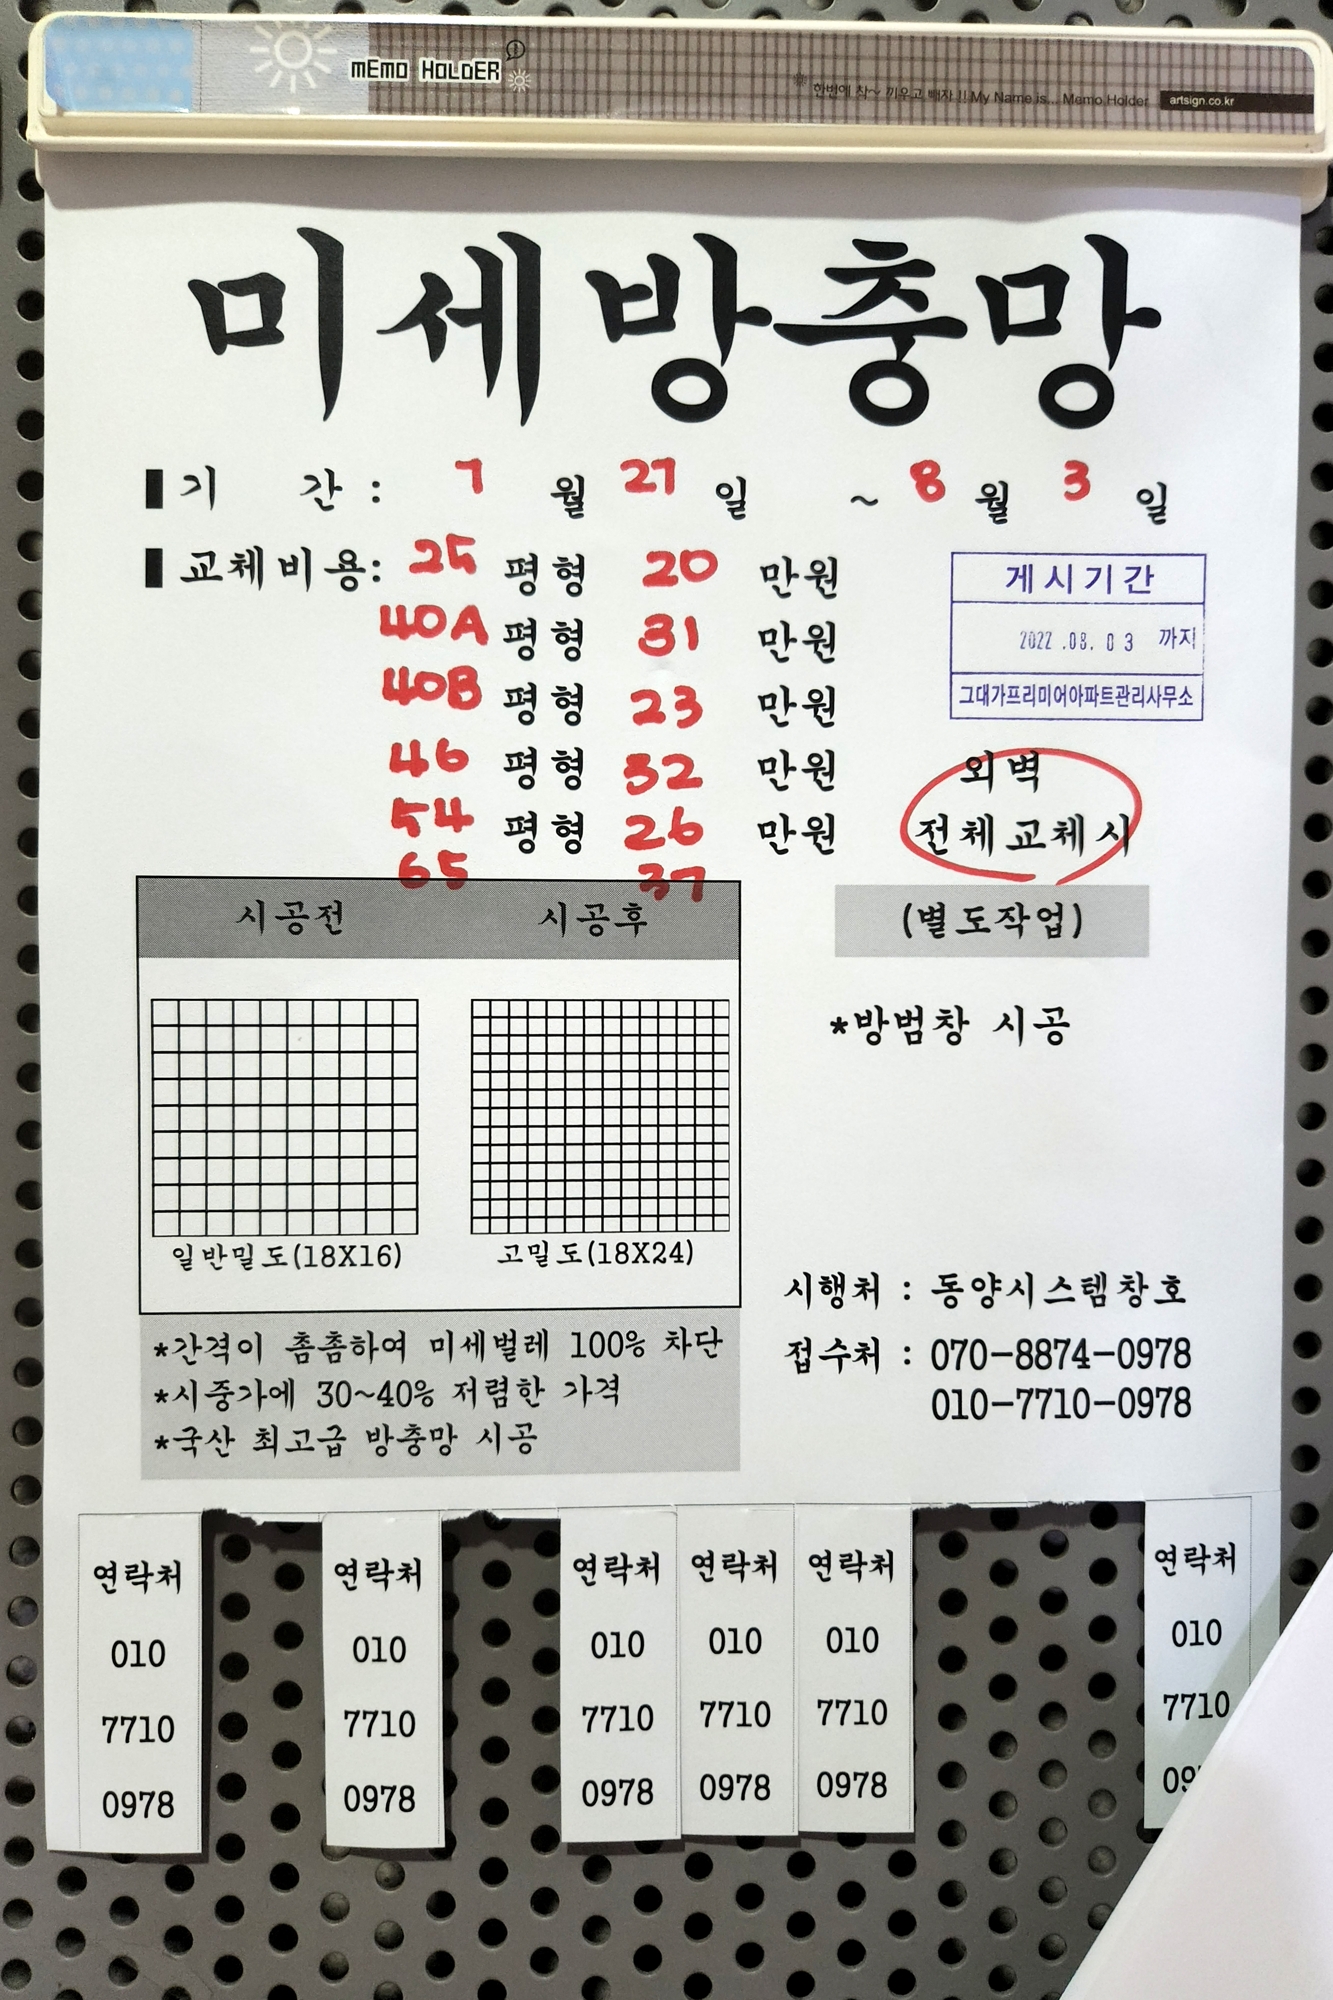 mEmo HoLdER
한번에 착~ 끼우고 빼자 !! My Name is... Memo Holder artsign.co.kr
미세방충망
기 간 : 7 월 27 일 ~ 8 월 3 일
교체비용: 25 평형 20 만원
40A 평형 31 만원
40B 평형 23 만원
46 평형 32 만원
54 평형 26 만원
65 37
게시기간
2022 .08. 03 까지
그대가프리미어아파트관리사무소
외벽
전체교체시
(별도작업)
*방범창 시공
시공전 시공후
일반밀도(18X16) 고밀도(18X24)
*간격이 촘촘하여 미세벌레 100% 차단
*시중가에 30~40% 저렴한 가격
*국산 최고급 방충망 시공
시행처 : 동양시스템창호
접수처 : 070-8874-0978
010-7710-0978
연락처
010
7710
0978
연락처
010
7710
0978
연락처
010
7710
0978
연락처
010
7710
0978
연락처
010
7710
0978
연락처
010
7710